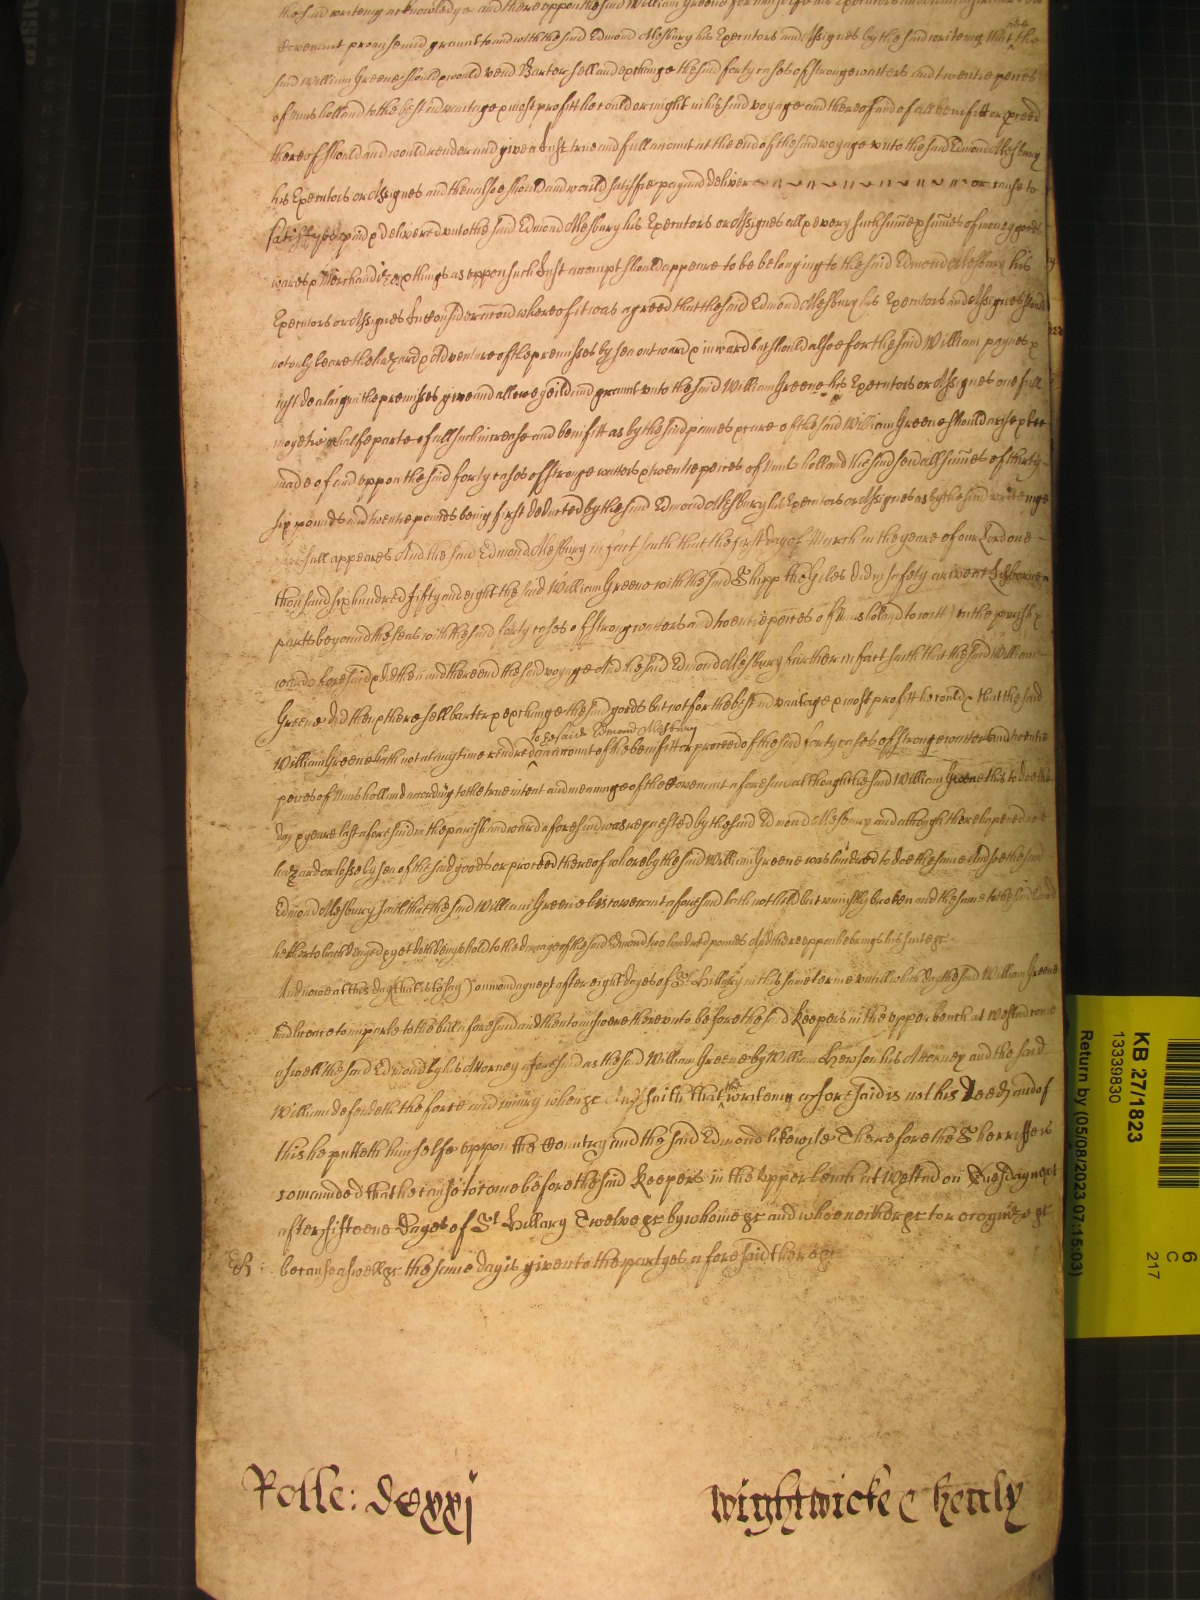 the said writeing acknowledge and thereuppon the said William Greene for himselfe his Executors and
Covenant promise and graunt to and with the said Edmond Alesbury his Executors and Assignes by the said writeing that hee the
said William Greene should & would vend Barter sell and exchange the said forty cases of strong watters and twentie peeces
of Nuns holland to the best advantage & most profitt he could or might in his said voyage and thereof and of all benifitt or proceed
thereof should and would render and give a Just true and full account at the end of the said voyage unto the said Edmond Alesbury
his Executors or Assignes and then alsoe should and would satisfie pay and deliver or cause to
be satisfyed paid & delivered unto the said Edmond Alesbury his Executors or Assignes all & every such summe & summes of money goods
wares & Merchandizes & things as uppon such Just accompt should appeare to be belonging to the said Edmond Alesbury his
Executors or Assignes In consideracion whereof it was agreed that the said Edmond Alesbury his Executors and Assignes should
not only beare the hazard & Adventure of the premisses by sea outward & inward but should alsoe for the said William paynes &
just dealeing in the premisses give and allowe yeild and graunt unto the said William Greene his Executors or Assignes one full
moyetie or halfe parte of all such increase and benifitt as by the said paines & care of the said William Greene should arise & bee
made of and uppon the said forty cases of stronge watters & twentie peeces of Nuns holland the said severall summes of thirty
six pounds and twentie pounds being first deducted by the said Edmond Alesbury his Executors or Assignes as by the said writeinge
shall appeare And the said Edmond Alesbury in fact saith that the first day of March in the yeare of our Lord one
thousand six hundred fifty and eight the said William Greene with the said Shipp the Gyles did in safety arive at Lisborne in
parts beyond the seas with the said forty cases of strong watters and twentie peeces of Nuns holand to witt in the parish &
ward aforesaid & did then and there end the said voyage And the said Edmond Alesbury further in fact saith that the said William
Greene did then & there sell barter & exchange the said goods but not for the best advantage & most profitt he could & that the said
to the said Edmond Alesbury
William Greene hath not at any time rendred an account of the benifitt or proceed of the said forty cases of stronge watters and twentie
peeces of Nuns holland according to the true intent and meaninge of the Covenant aforesaid althought the said William Greene this to doe the
day & yeare last aforesaid in the parish and ward aforesaid was requested by the said Edmond Alesbury and although there hapened noe
hazard or losse by sea of the said goods or proceed thereof whereby the said William Greene was hindred to doe the same And soe the said
Edmond Alesbury saith that the said William Greene his covenant aforesaid hath not held but wilfully broken and the same to the said Edmond
hitherto hath denyed & yet doth deny to hold to the damage of the said Edmond two hundred pounds And thereuppon he brings his suite &c
And nowe at this day (that is to say) on monday next after eight dayes of St Hillary in this same terme untill which day the said William Greene
had licence to imparle to the bill aforesaid and then to answere thereunto before the said Keepers in the upper bench at Westm come
aswell the said Edmond by his Attorney aforesaid as the said William Greene by William Hewson his Attorney and the said
William defendeth the force and injury when &c And saith that the writeing aforesaid is not his Deed and of
this he putteth himselfe uppon the Countrey and the said Edmond likewise Therefore the Sherriffe is
comaunded that he cause to come before the said Keepers in the Upper bench at Westm on Tuesday next
after fifteene Dayes of St Hillary Twelve &c by whome &c and whoe neither &c to recognize &c
because aswell &c the same day is given to the partyes aforesaid there &c
Rolle: dcxxj
Wightwicke & Henly
KB 27/1823
13339830
Return by (05/08/2023 07:15:03)
6
C
217